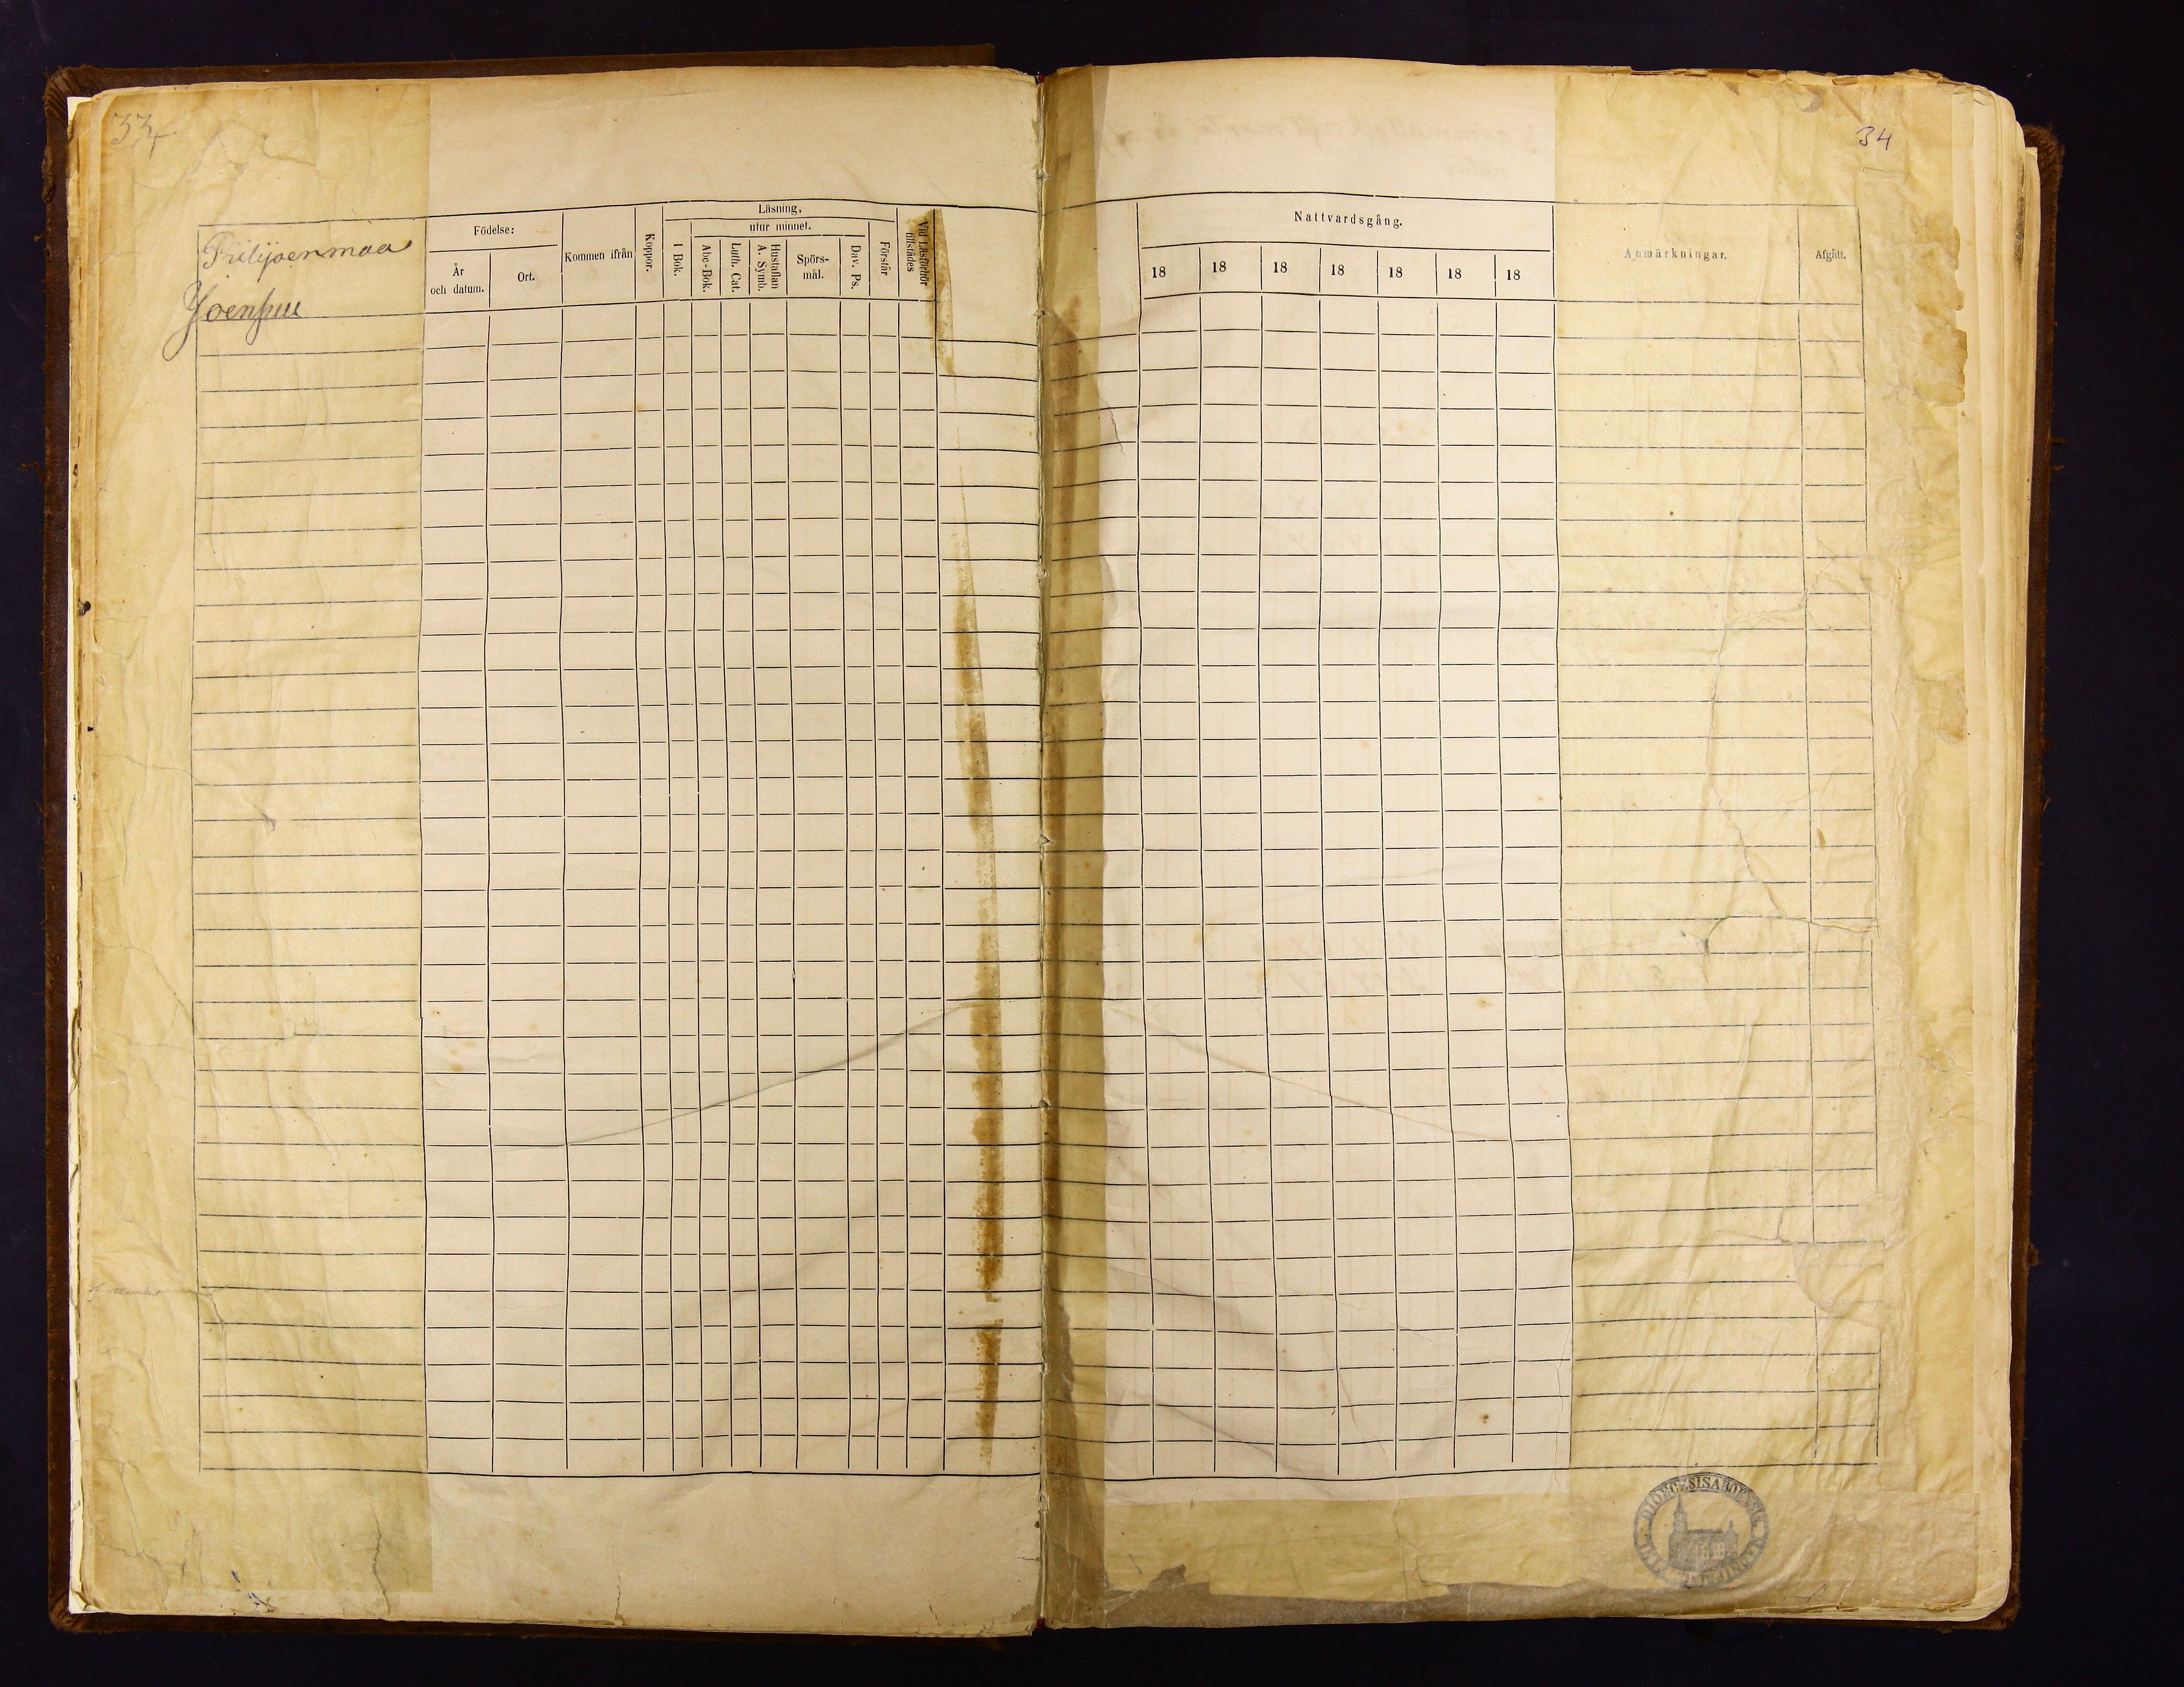 33
34
Piilijoenmaa
Joensuu
Födelse:
År
och datum.
Ort.
Kommen ifrån
Koppor.
Läsning,
I Bok.
utur minnet.
Abc-Bok.
Luth. Cat.
Hustaflan
A. Symb.
Spörs-
mål.
Dav. Ps.
Förstår
Vid Läsförhör
tillstädes
Nattvardsgång.
18 18 18 18 18 18 18
Anmärkningar.
Afgått.